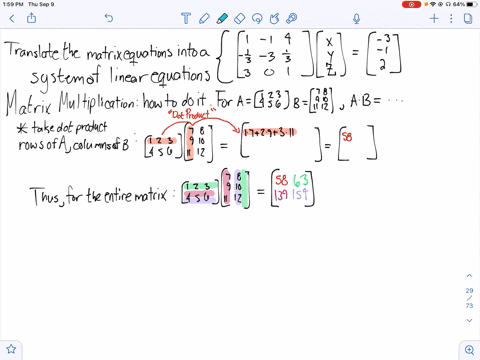 1:59 PM Thu Sep 9
64%
Translate the matrix equations into a
system of linear equations { [1 -1 4; -1/3 -3 1/3; 3 0 1] [x; y; z] = [-3; -1; 2]
Matrix Multiplication: how to do it. For A = [1 2 3; 4 5 6] B = [7 8; 9 10; 11 12], A·B = ...
"Dot Product"
* take dot product
rows of A, columns of B: [1 2 3; 4 5 6] [7 8; 9 10; 11 12] = [1·7+2·9+3·11] = [58]
Thus, for the entire matrix: [1 2 3; 4 5 6] [7 8; 9 10; 11 12] = [58 63; 139 154]
29
/
73